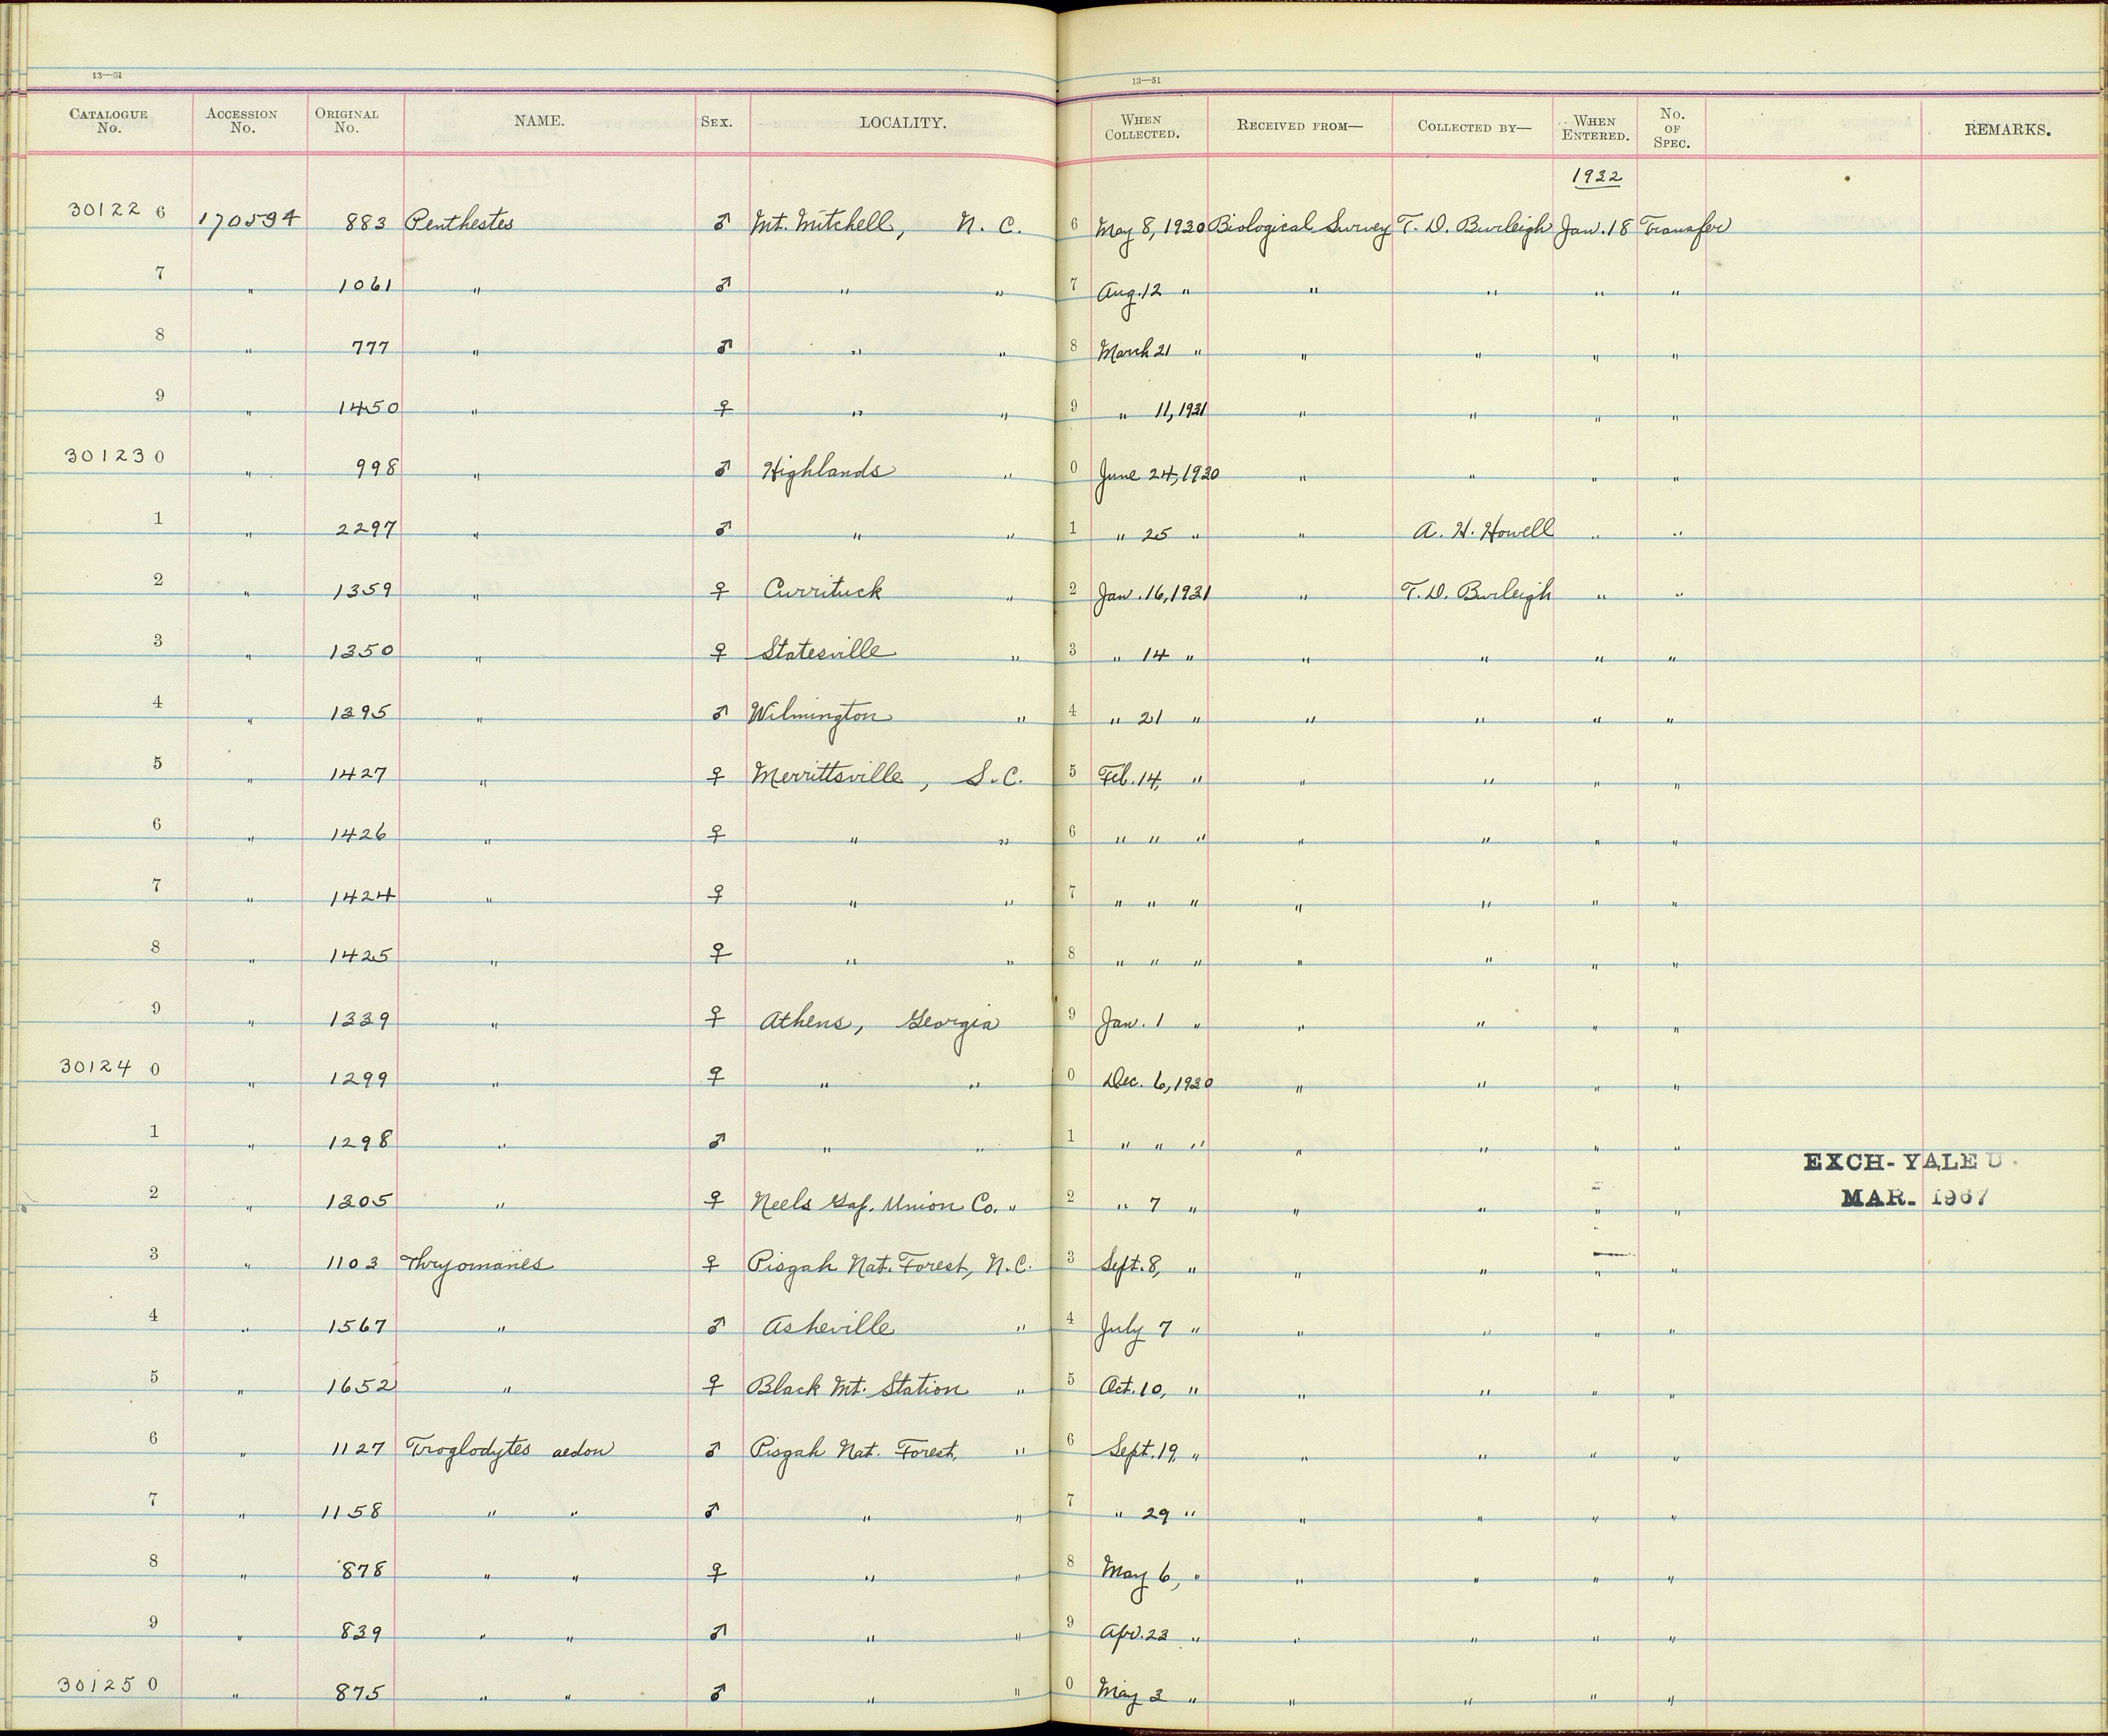 13—51 13—51
CATALOGUE No. ACCESSION No. ORIGINAL No. NAME. SEX. LOCALITY. WHEN COLLECTED. RECEIVED FROM— COLLECTED BY— WHEN ENTERED. No. OF SPEC. REMARKS.
1932
30122 6 170594 883 Penthestes ♂ Mt. Mitchell, N. C. 6 May 8, 1930 Biological Survey T. D. Burleigh Jan. 18 Transfer
7 " 1061 " ♂ " " 7 Aug. 12 " " " " "
8 " 777 " ♂ " " 8 March 21 " " " " "
9 " 1450 " ♀ " " 9 " 11, 1931 " " " "
30123 0 " 998 " ♂ Highlands " 0 June 24, 1930 " " " "
1 " 2297 " ♂ " " 1 " 25 " " A. H. Howell " "
2 " 1359 " ♀ Currituck " 2 Jan. 16, 1931 " T. D. Burleigh " "
3 " 1350 " ♀ Statesville " 3 " 14 " " " " "
4 " 1395 " ♂ Wilmington " 4 " 21 " " " " "
5 " 1427 " ♀ Merrittsville, S. C. 5 Feb. 14, " " " " "
6 " 1426 " ♀ " " 6 " " " " " " "
7 " 1424 " ♀ " " 7 " " " " " " "
8 " 1425 " ♀ " " 8 " " " " " " "
9 " 1339 " ♀ Athens, Georgia 9 Jan. 1 " " " " "
30124 0 " 1299 " ♀ " " 0 Dec. 6, 1930 " " " "
1 " 1298 " ♂ " " 1 " " " " " " "
EXCH- YALE U.
2 " 1305 " ♀ Neels Gap, Union Co. " 2 " 7 " " " " " MAR. 1967
3 " 1103 Thryomanes ♀ Pisgah Nat. Forest, N. C. 3 Sept. 8, " " " " "
4 " 1567 " ♂ Asheville " 4 July 7 " " " " "
5 " 1652 " ♀ Black Mt. Station " 5 Oct. 10, " " " " "
6 " 1127 Troglodytes aedon ♂ Pisgah Nat. Forest, " 6 Sept. 19, " " " " "
7 " 1158 " " ♂ " " 7 " 29 " " " " "
8 " 878 " " ♀ " " 8 May 6, " " " " "
9 " 839 " " ♂ " " 9 Apr. 23 " " " " "
30125 0 " 875 " " ♂ " " 0 May 3 " " " " "